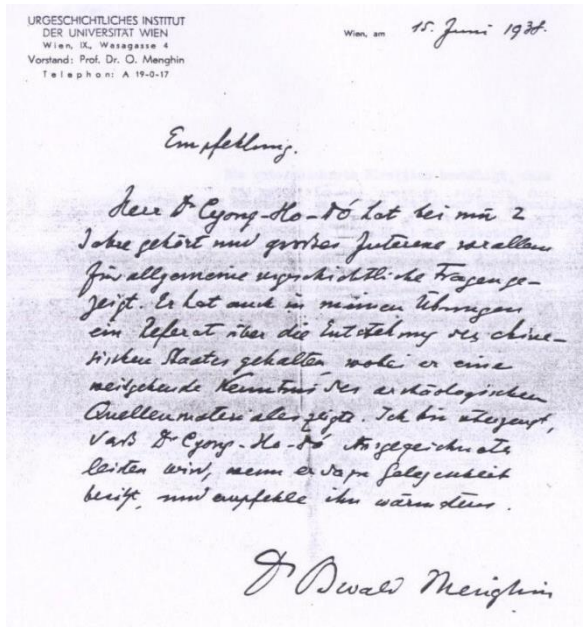 URGESCHICHTLICHES INSTITUT
DER UNIVERSITÄT WIEN
Wien, IX., Wasagasse 4
Vorstand: Prof. Dr. O. Menghin
Telephon: A 19-0-17
Wien, am 15. Juni 1938.
Empfehlung.
Herr Dr Cyong-Ho-Dó hat bei mir 2
Jahre gehört und großes Interesse vor allem
für allgemeine urgeschichtliche Fragen ge-
zeigt. Er hat auch in meinen Übungen
ein Referat über die Entstehung des chine-
sischen Staates gehalten, wobei er eine
weitgehende Kenntnis des archäologischen
Quellenmateriales zeigte. Ich bin überzeugt,
daß Dr Cyong-Ho-Dó Ausgezeichnetes
leisten wird, wenn er dazu Gelegenheit
besitzt, und empfehle ihn wärmstens.
Dr Oswald Menghin